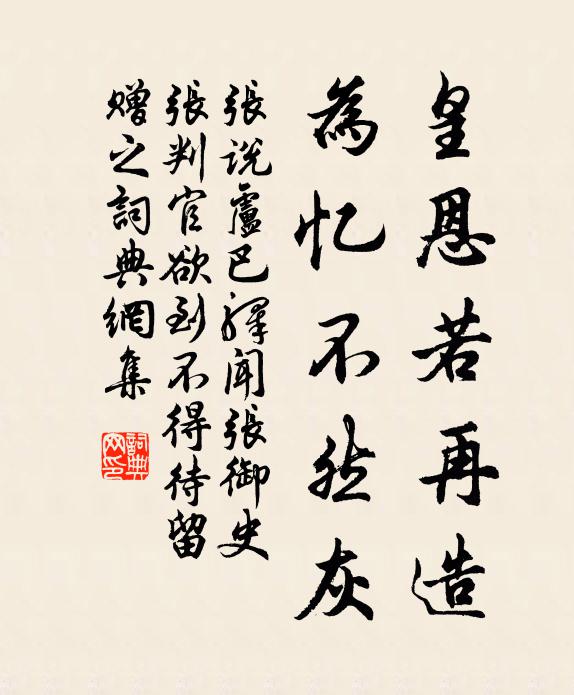 皇恩若再造
為忆不然灰
張説盧巴驛聞張御史
張判官欲到不得待留
贈之詞典網集
詞典网印